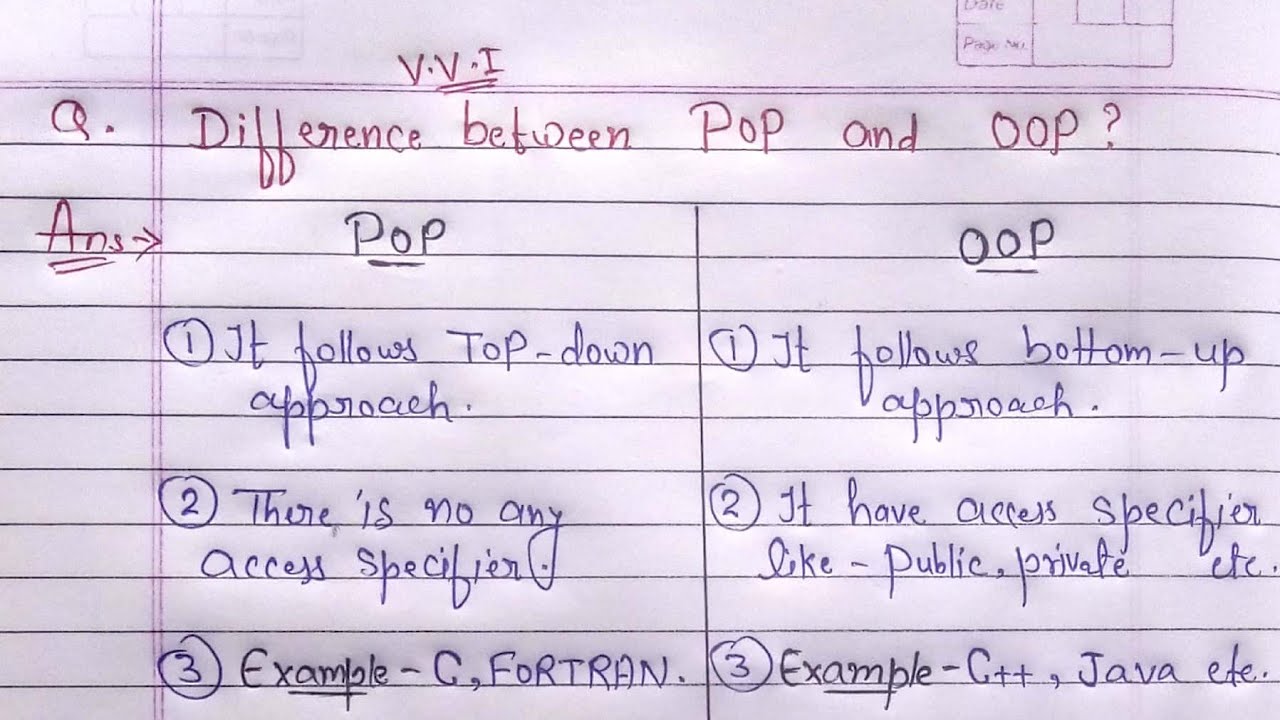 Date
Page No.
V.V.I
Q. Difference between POP and OOP?
Ans→ POP
① It follows Top-down
approach.
② There is no any
access specifier.
③ Example - C, FORTRAN.
OOP
① It follows bottom-up
approach.
② It have access specifier
like - public, private etc.
③ Example - C++, Java etc.